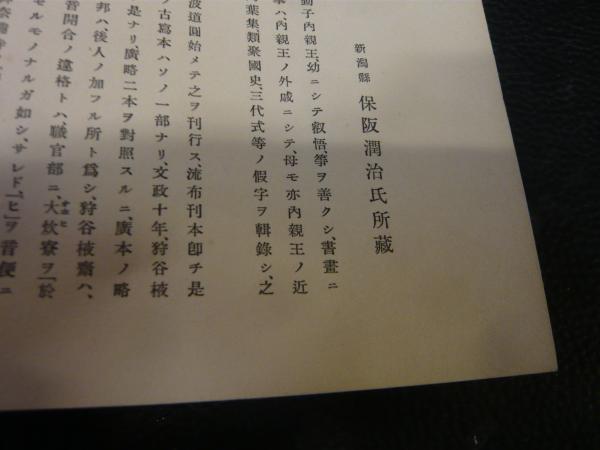 新潟縣 保阪潤治氏所藏
勤子內親王、幼ニシテ叡悟、箏ヲ善クシ、書畫ニ
ハ、內親王ノ外戚ニシテ、母モ亦內親王ノ近
葉集、類聚國史、三代式等ノ假字ヲ輯錄シ、之
波道圓始メテ之ヲ刊行ス、流布刊本卽チ是
ノ古寫本ハソノ一部ナリ、文政十年、狩谷棭
是ナリ、廣略二本ヲ對照スルニ、廣本ノ略
邦ハ後人ノ加フル所ト爲シ、狩谷棭齋ハ、
音開合ノ違格トハ、職官部ニ、大炊寮ヲ「於
セルモノナルガ如シ、サレド、「ヒ」ヲ音便ニ